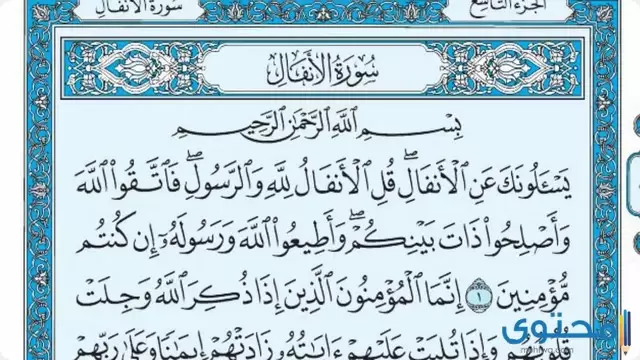 سُورَةُ الأَنفَالِ
الجُزءُ التَّاسِعُ
سُورَةُ الأَنفَالِ
بِسْمِ ٱللَّهِ ٱلرَّحْمَٰنِ ٱلرَّحِيمِ
يَسْـَٔلُونَكَ عَنِ ٱلْأَنفَالِۖ قُلِ ٱلْأَنفَالُ لِلَّهِ وَٱلرَّسُولِۖ فَٱتَّقُوا۟ ٱللَّهَ
وَأَصْلِحُوا۟ ذَاتَ بَيْنِكُمْۖ وَأَطِيعُوا۟ ٱللَّهَ وَرَسُولَهُۥٓ إِن كُنتُم
مُّؤْمِنِينَ ١ إِنَّمَا ٱلْمُؤْمِنُونَ ٱلَّذِينَ إِذَا ذُكِرَ ٱللَّهُ وَجِلَتْ
قُلُوبُهُمْ وَإِذَا تُلِيَتْ عَلَيْهِمْ ءَايَٰتُهُۥ زَادَتْهُمْ إِيمَٰنًا وَعَلَىٰ رَبِّهِمْ
محتوى